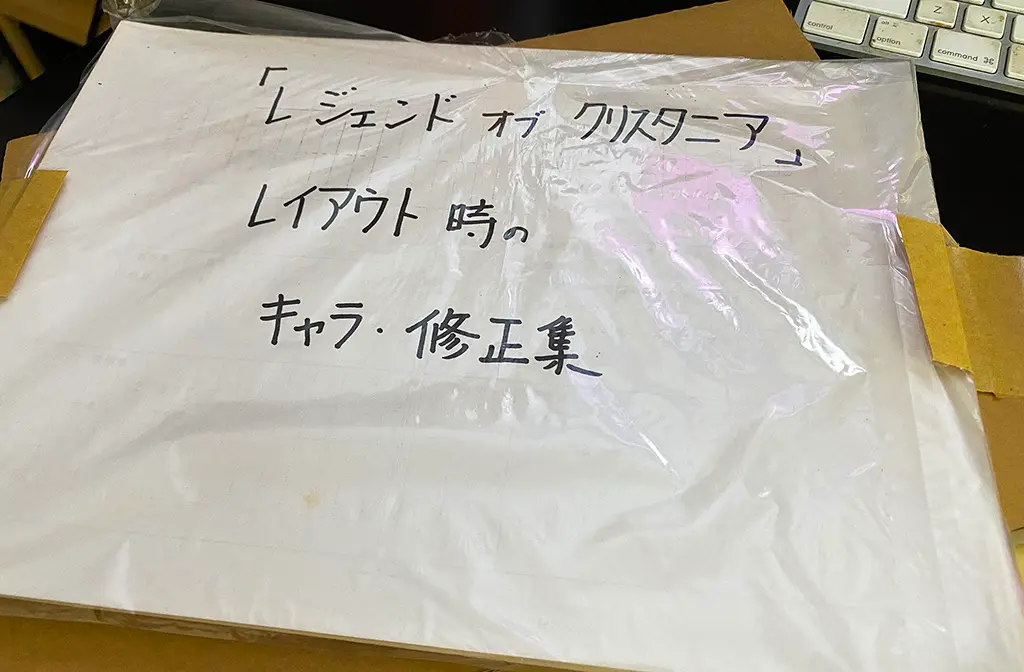 「レジェンド オブ クリスタニア」
レイアウト時の
キャラ・修正集
control
alt
option
command ⌘
Z
X